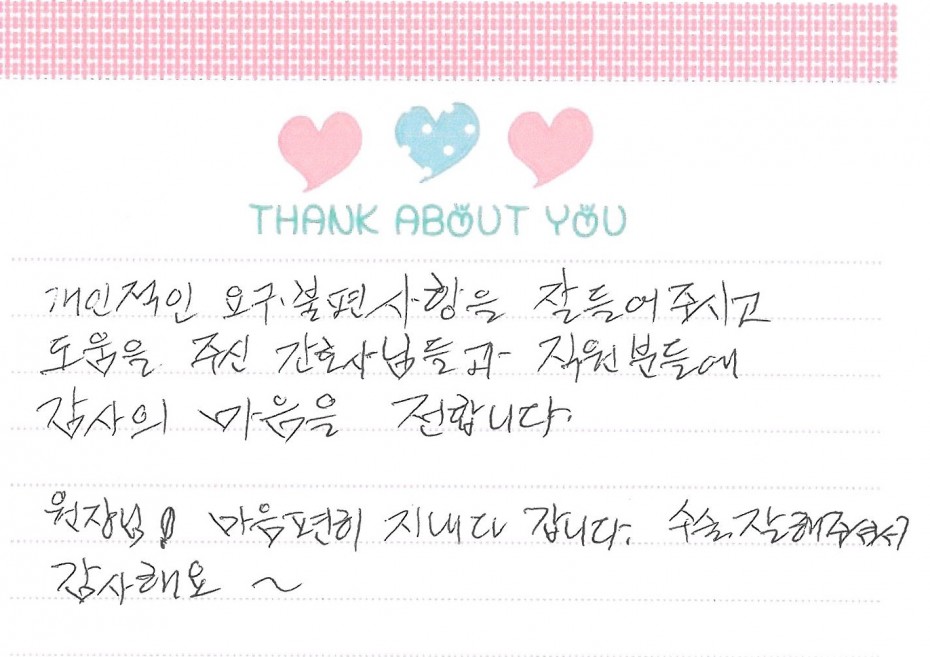 THANK ABOUT YOU
개인적인 요구·불편사항을 잘들어주시고
도움을 주신 간호사님들과 직원분들에
감사의 마음을 전합니다.
원장님! 마음편히 지내다 갑니다. 수술잘해주셔서
감사해요 ~